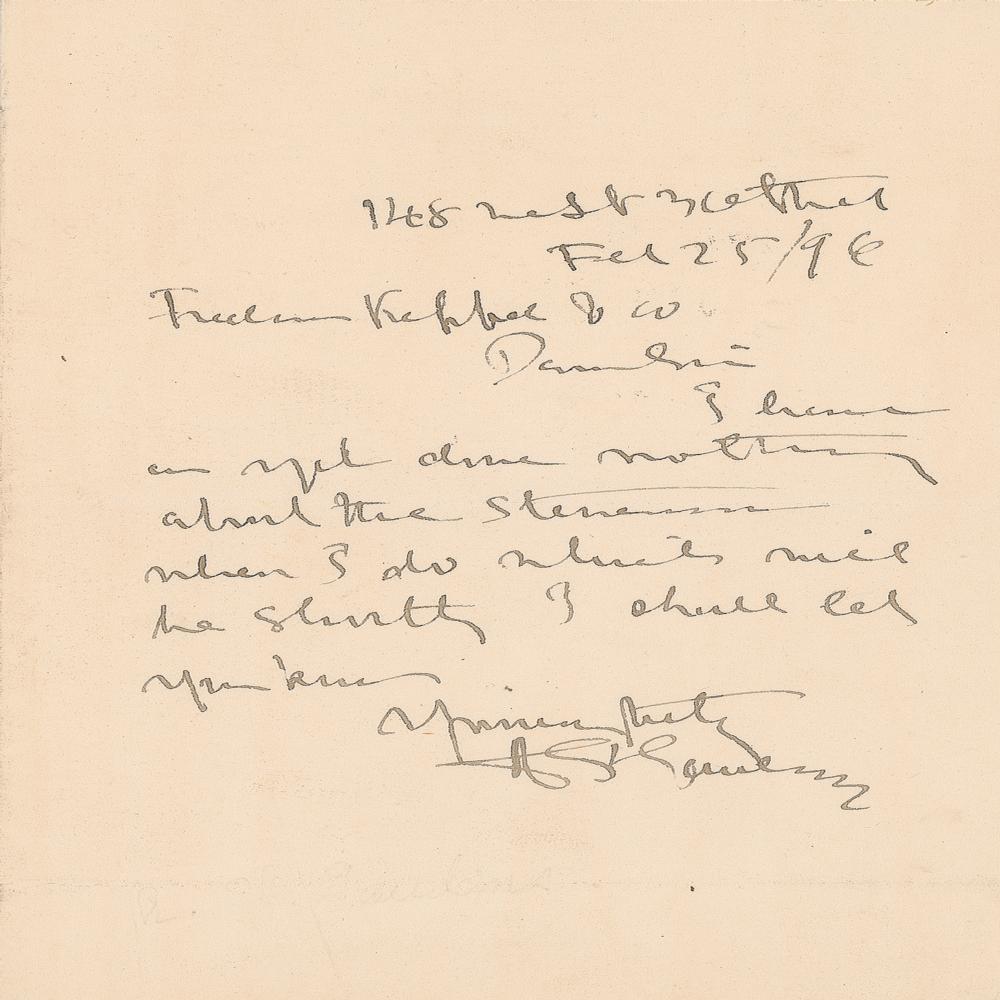 148 West 36th St
Feb 25/96
Frederic Keppel & Co
Dear Sirs
I have
as yet done nothing
about the Stevenson
when I do which will
be shortly I shall let
you know
Yours truly
A St Gaudens